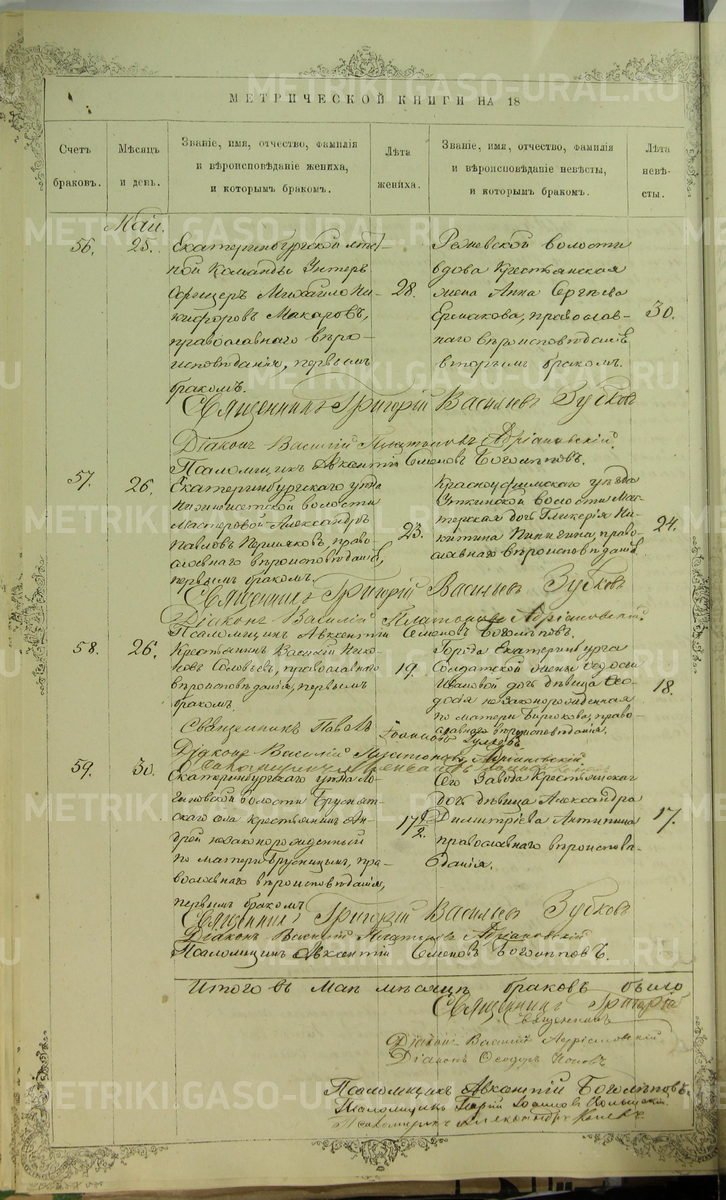 МЕТРИЧЕСКОЙ КНИГИ НА 18
Счетъ браковъ.
Мѣсяцъ и день.
Званіе, имя, отчество, фамилія и вѣроисповѣданіе жениха, и которымъ бракомъ.
Лѣта жениха.
Званіе, имя, отчество, фамилія и вѣроисповѣданіе невѣсты, и которымъ бракомъ.
Лѣта невѣсты.
Май.
56.
25.
Екатеринбургской
ной Команды Унтеръ
Офицеръ Михаило Ни-
кифоровъ Макаровъ,
православнаго вѣро-
исповѣданія, первымъ
бракомъ.
28.
Режевской волости
вдова Крестьянская
жена Анна Сергѣева
Ермакова, православ-
наго вѣроисповѣданія,
вторымъ бракомъ.
30.
Священникъ Григорій Васильевъ Зубковъ
Діаконъ Василій Платоновъ Адріановскій.
Псаломщикъ Авксентій Семеновъ Боголѣповъ.
57.
26.
Екатеринбургскаго уѣзда
волости
Мастеровой Александръ
Павловъ православнаго вѣроисповѣданія,
первымъ бракомъ.
23.
Красноуфимскаго уѣзда
Уткинской волости Мас-
терская дочь Гликерія Ни-
китина Пинигина, право-
славнаго вѣроисповѣданія.
24.
Священникъ Григорій Васильевъ Зубковъ
Діаконъ Василій Платоновъ Адріановскій.
Псаломщикъ Авксентій Семеновъ Боголѣповъ.
58.
26.
Крестьянинъ Василій Нико-
новъ Соловьевъ, православнаго
вѣроисповѣданія, первымъ
бракомъ.
19.
Города Екатеринбурга
Солдатской жены Ѳедосьи
Ивановой дочь дѣвица Ѳео-
досія незаконорожденная
по матери Бирюкова, право-
славнаго вѣроисповѣданія.
18.
Священникъ Павелъ Іоанновъ
Діаконъ Василій Платоновъ Адріановскій.
59.
30.
Екатеринбургскаго уѣзда Ло-
гиновской волости Бруснят-
скаго села крестьянинъ Ан-
дрей незаконорожденный
по матери Брусницынъ, пра-
вославнаго вѣроисповѣданія,
первымъ бракомъ
17½.
Сего Завода Крестьянская
дочь дѣвица Александра
Димитріева Антипина
православнаго вѣроисповѣ-
данія.
17.
Священникъ Григорій Васильевъ Зубковъ
Діаконъ Василій Платоновъ Адріановскій
Псаломщикъ Авксентій Семеновъ Боголѣповъ.
Итого въ Маѣ мѣсяцѣ браковъ было
Священникъ Григорій
священникъ
Діаконъ Василій Адріановскій
Діаконъ Ѳеодоръ Поповъ
Псаломщикъ Авксентій Боголѣповъ.
Псаломщикъ Іоанновъ
Псаломщикъ Александръ
METRIKI.GASO-URAL.RU